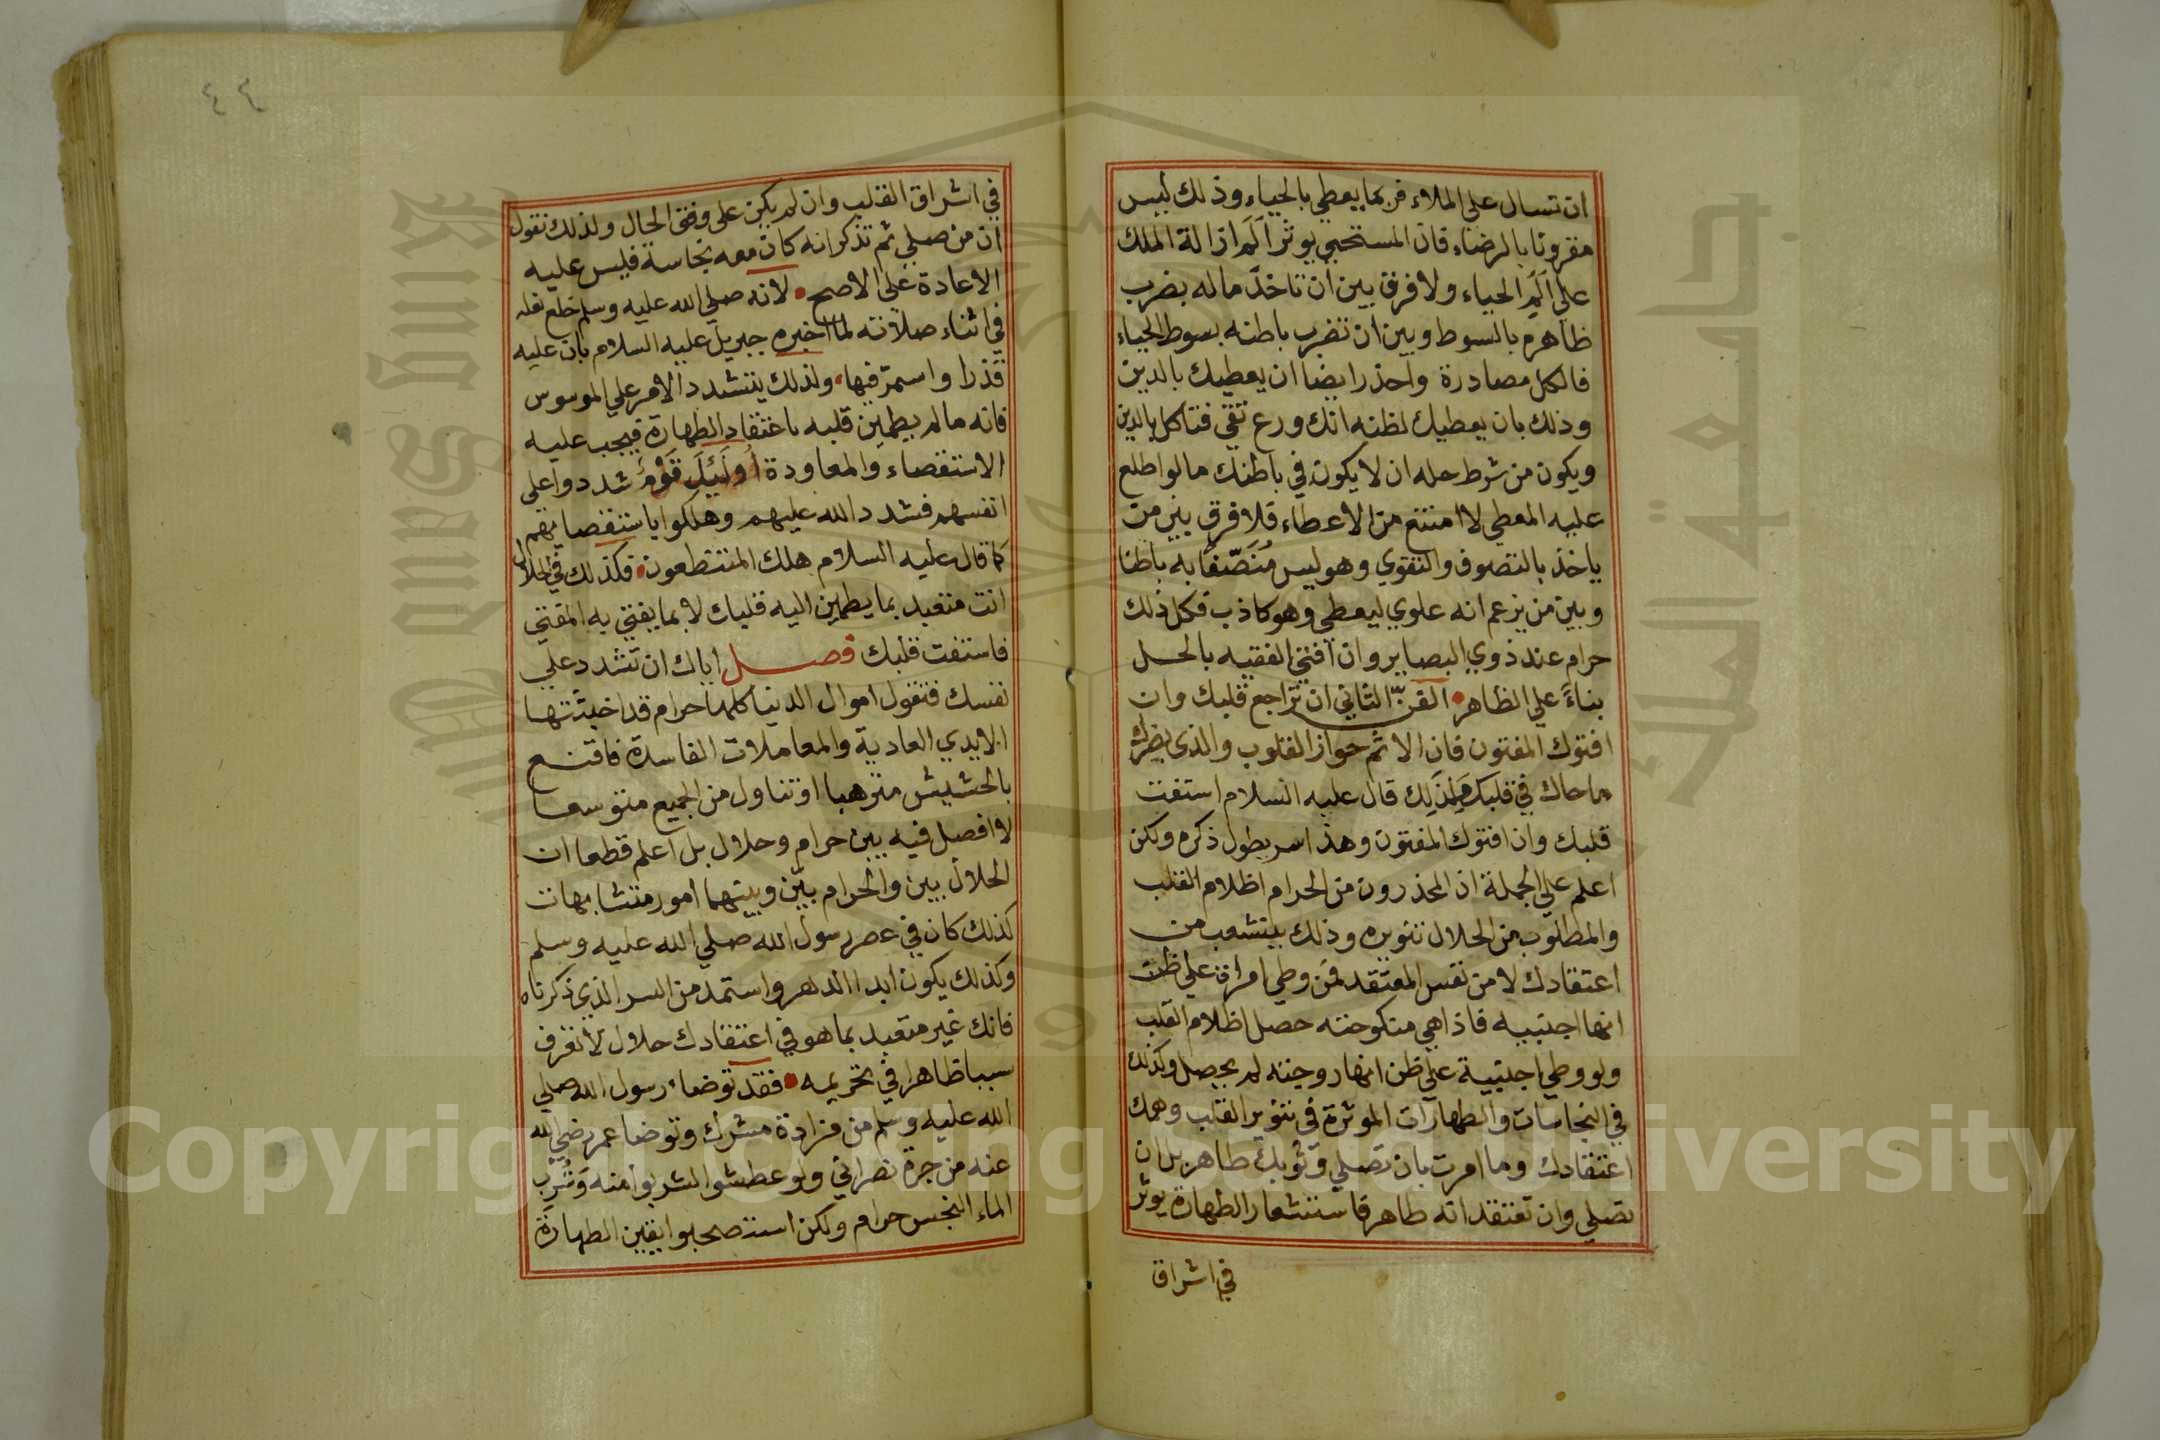 ان تسال على الملاء فربما يعطي بالحياء وذلك ليس
مقرونا بالرضاء فان المستحيي يوثر اَلَم ازالة الملك
علي اَلَمِ الحياء ولا فرق بين ان تاخذ ماله بضرب
ظاهره بالسوط وبين ان تضرب باطنه بسوط الحياء
فالكل مصادرة واحذر ايضا ان يعطيك بالدين
وذلك بان يعطيك لظنه انك ورع تقي فتاكل بالدين
ويكون من شرط حله ان لا يكون في باطنك ما لو اطلع
عليه المعطي لا امتنع من الاعطاء فلا فرق بين من
ياخذ بالتصوف والتقوي وهو ليس مُتَصّفًا به باطنا
وبين من يزعم انه علوي ليعطي وهو كاذب فكل ذلك
حرام عند ذوي البصاير وان افتي الفقيه بالحل
بناءً علي الظاهر الفن الثاني ان تراجع قلبك وان
افتوك المفتون فان الاثم حواز القلوب والذي يضرك
ما حاك في قلبك فلذلك قال عليه السلام استفت
قلبك وان افتوك المفتون وهذا سر يطول ذكره ولكن
اعلم علي الجملة ان المحذرون من الحرام اظلام القلب
والمطلوب من الحلال تنويره وذلك يتشعب من
اعتقادك لا من نفس المعتقد فمن وطي امراة علي ظن
انها اجنبية فاذا هي منكوحته حصل اظلام القلب
ولو وطي اجنبية علي ظن انها زوجته لم يحصل وكذلك
في النجاسات والطهارات الموثرة في تنوير القلب وهمك
اعتقادك وما امرت بان تصلي وثوبك طاهر بل ان
تصلي وان تعتقد انه طاهر فاستشعار الطهارة يوثر
في اشراق
٤٤
في اشراق القلب وان لم يكن على وفق الحال ولذلك نقول
ان من صلي ثم تذكر انه كان معه نجاسة فليس عليه
الاعادة على الاصح لانه صلي الله عليه وسلم خلع نعله
في اثناء صلاته لما اخبره جبريل عليه السلام بان عليه
قذرا واستمر فيها ولذلك يتشدد الامر علي الموسوس
فانه ما لم يطمين قلبه باعتقاد الطهارة فيجب عليه
الاستقصاء والمعاودة اُولَئِكَ قَوْمٌ شددوا على
انفسهم فشدد الله عليهم وهلكوا باستقصايهم
كما قال عليه السلام هلك المتنطعون فكذلك في الحلال
انت متعبد بما يطمين اليه قلبك لا بما يفتي به المفتي
فاستفت قلبك فصل اياك ان تشدد علي
نفسك فتقول اموال الدنيا كلها حرام قد اخبثتها
الايدي العادية والمعاملات الفاسدة فاقنع
بالحشيش مترهبا او تناول من الجميع متوسعا
لا افصل فيه بين حرام وحلال بل اعلم قطعا ان
الحلال بين والحرام بيّن وبينهما امور متشابهات
كذلك كان في عصر رسول الله صلي الله عليه وسلم
وكذلك يكون ابدا الدهر واستمد من السر الذي ذكرناه
فانك غير متعبد بما هو في اعتقادك حلال لا تعرف
سببا ظاهرا في تحريمه فقد توضا رسول الله صلي
الله عليه وسلم من مزادة مشرك وتوضا عمر رضي الله
عنه من جرة نصراني ولو عطشوا لشربوا منه وَشُرْبُ
الماء النجس حرام ولكن استصحبوا يقين الطهارة
جامعة الملك
King Saud University
Copyright © King Saud University